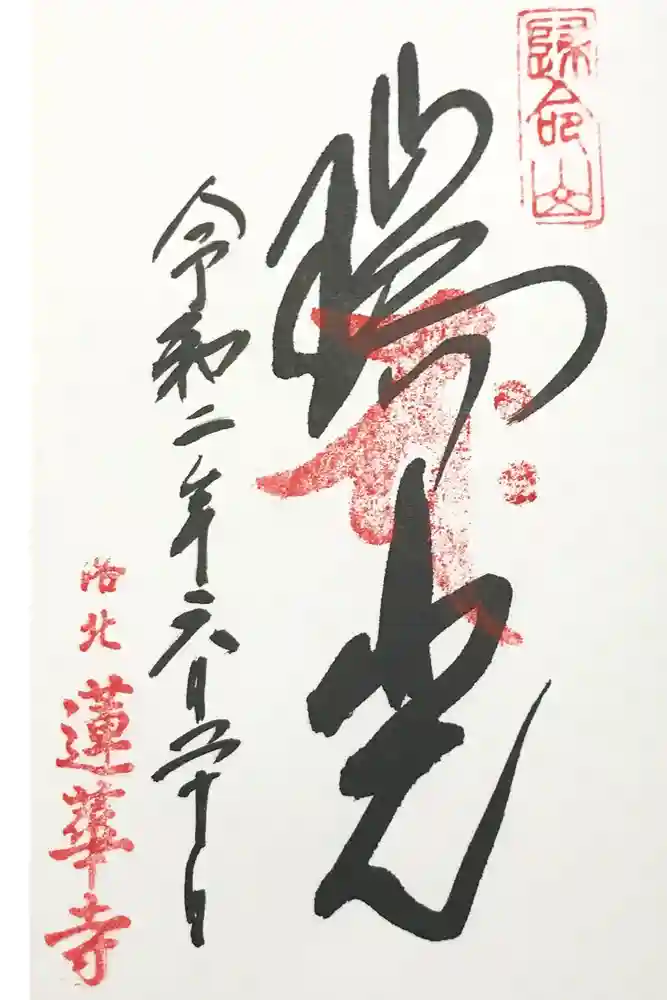 歸命山
瑞光
令和二年六月二十日
洛北 蓮華寺